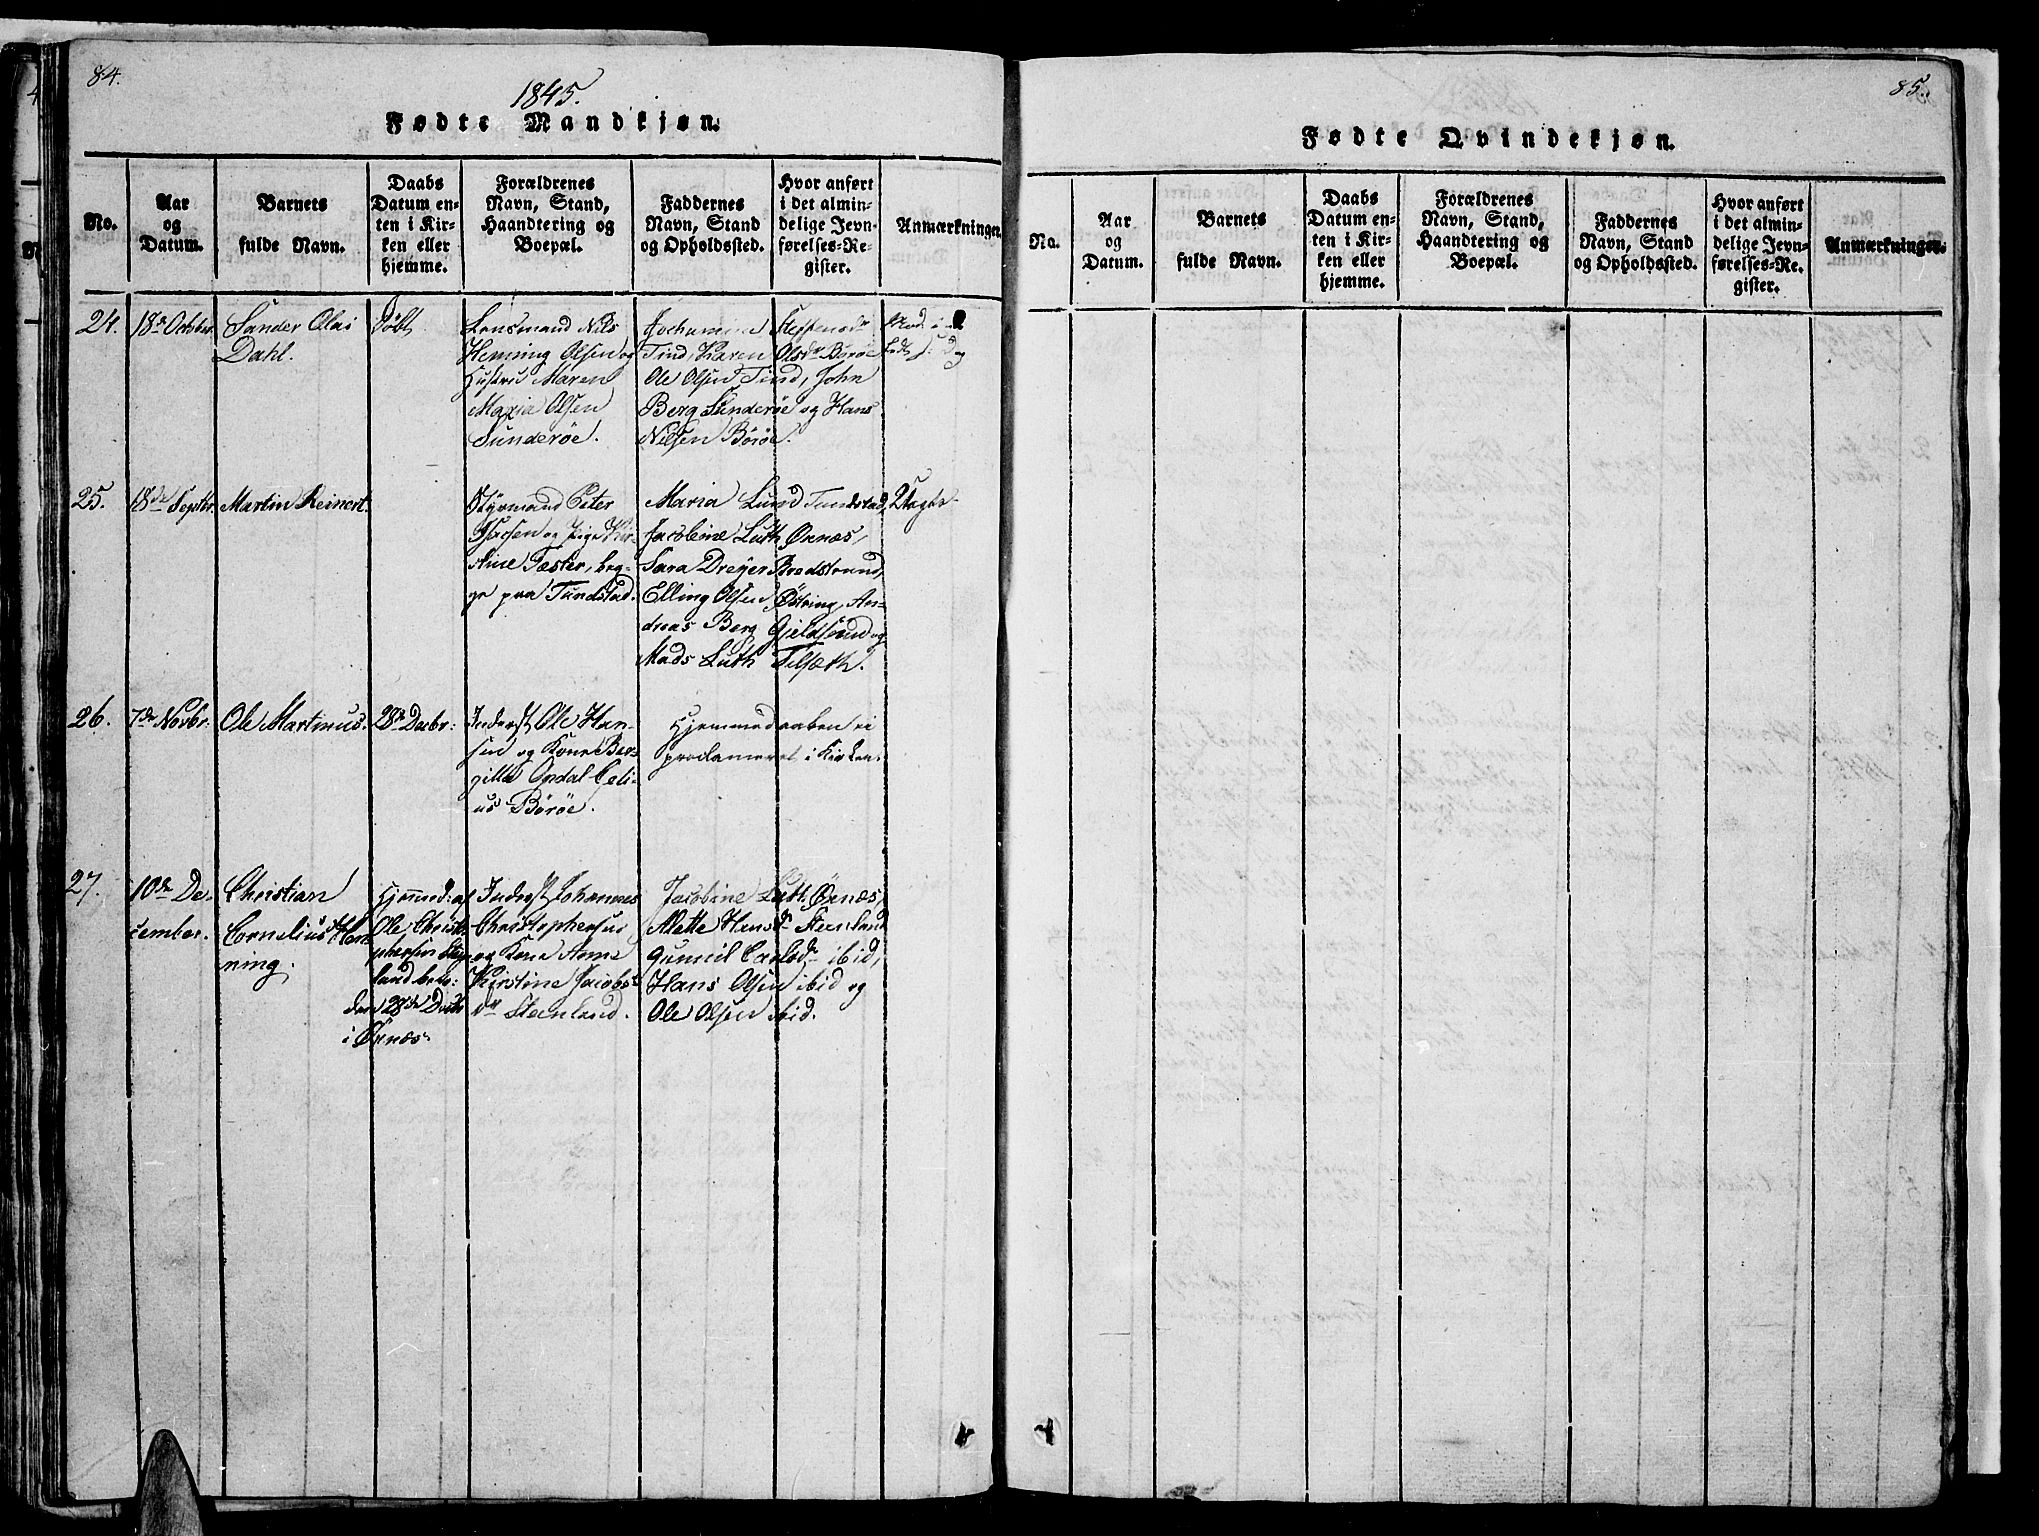 84.
1845.
Fødte Mandkjøn.
No.
Aar
og
Datum.
Barnets
fulde Navn.
Daabs
Datum en-
ten i Kir-
ken eller
hjemme.
Forældrenes
Navn, Stand,
Haandtering og
Boepæl.
Faddernes
Navn, Stand
og Opholdssted.
Hvor anført
i det almin-
delige Jevn-
førelses-Re-
gister.
Anmærkninger.
24.
18de Octobr.
Sander Olai
Dahl.
Døbt
Lensmand Nils
Heming Olsen og
Hustru Maren
Maria Olsen
Sunderøe.
Jochumine Steffensdr
Tind, Karen Olsdr Børøe
Ole Olsen Tind, John
Berg Sunderøe og Hans
Nilsen Børøe.
25.
18de Septbr.
Martin Reinert.
Styrmand Peter
og Pige Kir-
stine Fæster, beg-
ge paa Tundstad.
Maria Lund Tundstad,
Jacobine Luth Ørnæs,
Sara Dreyer Bredstrand,
Elling Olsen Østring, An-
dreas Berg Gjeldsund og
Mads Luth Tilseth.
Uægte.
26.
7de Novbr:
Ole Martinus.
28de Decbr:
Inderst Ole Han-
sen og Kone Ber-
gitta Opdal Celi-
us Børøe.
Hjemmedaaben ei
proclameret i Kirken.
27.
10de De-
cember.
Christian
Cornelius Hen-
ning.
Hjemmed: af
Ole Christo-
phersen Steen-
land
den 28de Decbr
i Ørnæs.
Inderst Johannes
Christophersen
og Kone Anne
Kirstine Jacobs-
dr Steenland.
Jacobine Luth Ørnæs,
Alette Hansdr Steenland
Gunnil Carlsdr ibid,
Hans Olsen ibid og
Ole Olsen ibid.
85.
Fødte Qvindekjøn.
No.
Aar
og
Datum.
Barnets
fulde Navn.
Daabs
Datum en-
ten i Kir-
ken eller
hjemme.
Forældrenes
Navn, Stand,
Haandtering og
Boepæl.
Faddernes
Navn, Stand
og Opholdssted.
Hvor anført
i det almin-
delige Jevn-
førelses-Re-
gister.
Anmærkninger.